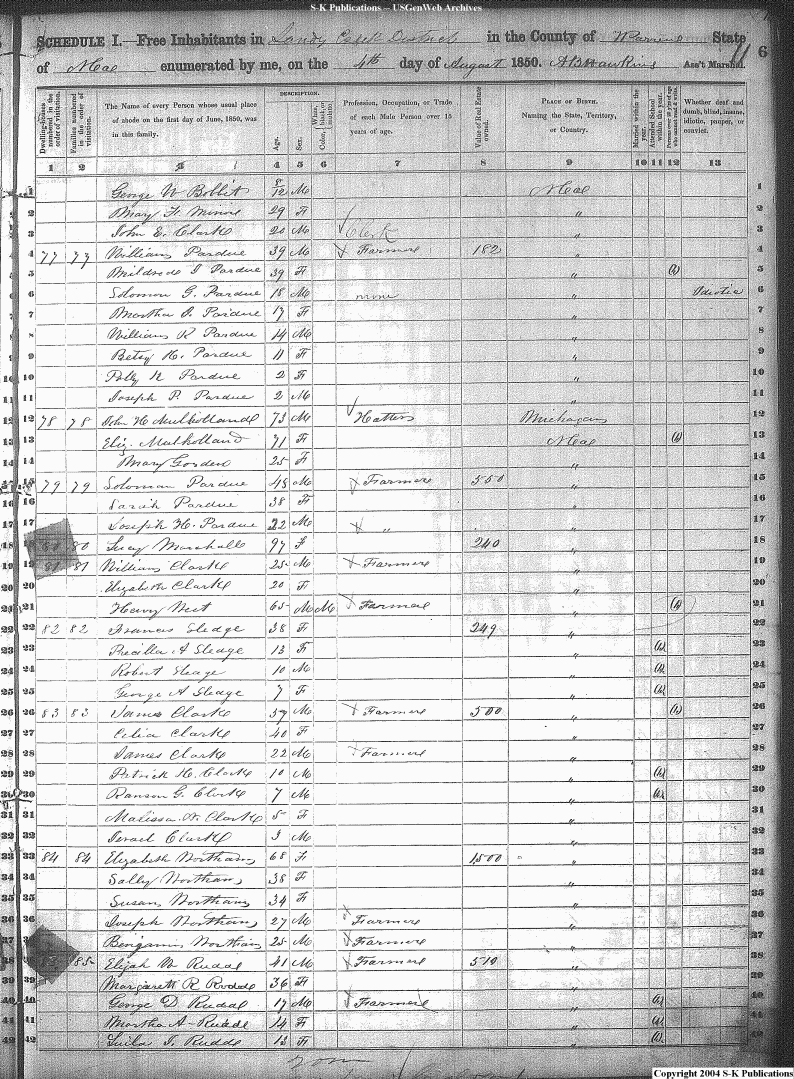 S-K Publications -- USGenWeb Archives
SCHEDULE I.—Free Inhabitants in Sandy Creek District in the County of Warren State 6
of N Ca enumerated by me, on the 4th day of August 1850. Ass't Marshal.
Dwelling-houses numbered in the order of visitation.
Families numbered in the order of visitation.
The Name of every Person whose usual place of abode on the first day of June, 1850, was in this family.
DESCRIPTION.
Age.
Sex.
Color,
Profession, Occupation, or Trade of each Male Person over 15 years of age.
Value of Real Estate owned.
PLACE OF BIRTH.
Naming the State, Territory, or Country.
Married within the year.
Attended School within the year.
Whether deaf and dumb, blind, insane, idiotic, pauper, or convict.
1 2 3 4 5 6 7 8 9 10 11 12 13
1 George W Bobbit 12 M 1
2 Mary F. Minor 29 F " 2
3 John E. Clark 20 M Clerk " 3
4 77 77 William Pardue 39 M Farmer 182 " 4
5 Mildred J Pardue 39 F " (1) 5
6 Solomon G. Pardue 18 M none " Idiotic 6
7 Martha Pardue 17 F " 7
8 William R Pardue 14 M " 8
9 Betsy H. Pardue 11 F " 9
10 Polly Pardue 2 F " 10
11 Joseph P. Pardue 2 M " 11
12 78 78 John H Mulholland 73 M Hatter Michagan 12
13 Eliz Mulholland 71 F (1) 13
14 Mary Gorden 25 F " 14
15 79 79 Soloman Pardue 45 M Farmer 550 " 15
16 Sarah Pardue 38 F " 16
17 Joseph H. Pardue 22 M " " 17
18 80 80 Lucy Marshall 97 F 240 " 18
19 81 81 William Clark 25 M Farmer " 19
20 Elizabeth Clark 20 F " 20
21 Henry 65 M M Farmer " (1) 21
22 82 82 Frances Sledge 38 F 249 " 22
23 Precilla A Sledge 13 F " (1) 23
24 Robert Sledge 10 M " (1) 24
25 George A Sledge 7 F " (1) 25
26 83 83 James Clark 57 M Farmer 500 " (1) 26
27 Celia Clark 40 F " 27
28 James Clark 22 M Farmer " 28
29 Patrick H. Clark 10 M " (1) 29
30 Ranson G. Clark 7 M " (1) 30
31 Malissa Clark 5 F " 31
32 Israel Clark 3 M " 32
33 84 84 Elizabeth Northam 68 F 1500 " 33
34 Sally Northam 38 F " 34
35 Susan Northam 34 F " 35
36 Joseph Northam 27 M Farmer " 36
37 Bengamin Northam 25 M Farmer " 37
38 85 Elijah W Rudd 41 M Farmer 510 " 38
39 Margarett R Rudd 36 F " 39
40 George D. Rudd 17 M Farmer " (1) 40
41 Martha A Rudd 14 F " (1) 41
42 J. Rudd 13 F " (1) 42
Copyright 2004 S-K Publications